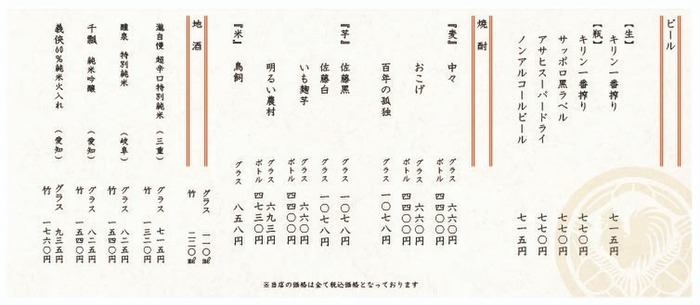 ビール
【生】
キリン一番搾り 七一五円
【瓶】
キリン一番搾り 七七〇円
サッポロ黒ラベル 七七〇円
アサヒスーパードライ 七七〇円
ノンアルコールビール 七一五円
焼酎
『麦』 中々 グラス 六六〇円
ボトル 四四〇〇円
おこげ グラス 六六〇円
ボトル 四四〇〇円
百年の孤独 グラス 一〇七八円
『芋』 佐藤黒 グラス 一〇七八円
佐藤白 グラス 一〇七八円
いも麹芋 グラス 六六〇円
ボトル 四四〇〇円
明るい農村 グラス 六九三円
ボトル 四七三〇円
『米』 鳥飼 グラス 八五八円
地酒
グラス 一一〇㎖
竹 二二〇㎖
瀧自慢 超辛口特別純米 (三重) グラス 七一五円
竹 一三二〇円
醴泉 特別純米 (岐阜) グラス 八二五円
竹 一五四〇円
千瓢 純米吟醸 (愛知) グラス 八二五円
竹 一五四〇円
義侠60%純米火入れ (愛知) グラス 九三五円
竹 一七六〇円
※当店の価格は全て税込価格となっております